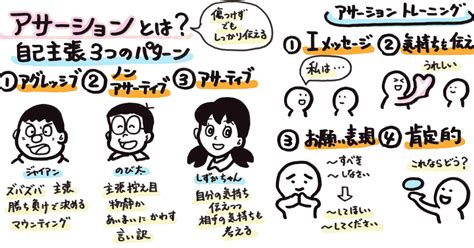 アサーションとは?
自己主張3つのパターン
傷つけず
でも
しっかり伝える
①アグレッシブ
②ノン
アサーティブ
③アサーティブ
ジャイアン
ズバズバ 主張
勝ち負けで決める
マウンティング
のび太
主張控え目
物静か
あいまいにかわす
言い訳
しずかちゃん
自分の気持ち
伝えつつ
相手の気持ちも
考える
アサーション トレーニング
①Iメッセージ
私は…
②気持ちも伝え
うれしい
③お願い表現
〜すべき
〜しなさい
〜してほしい
〜してください
④肯定的
これならどう?